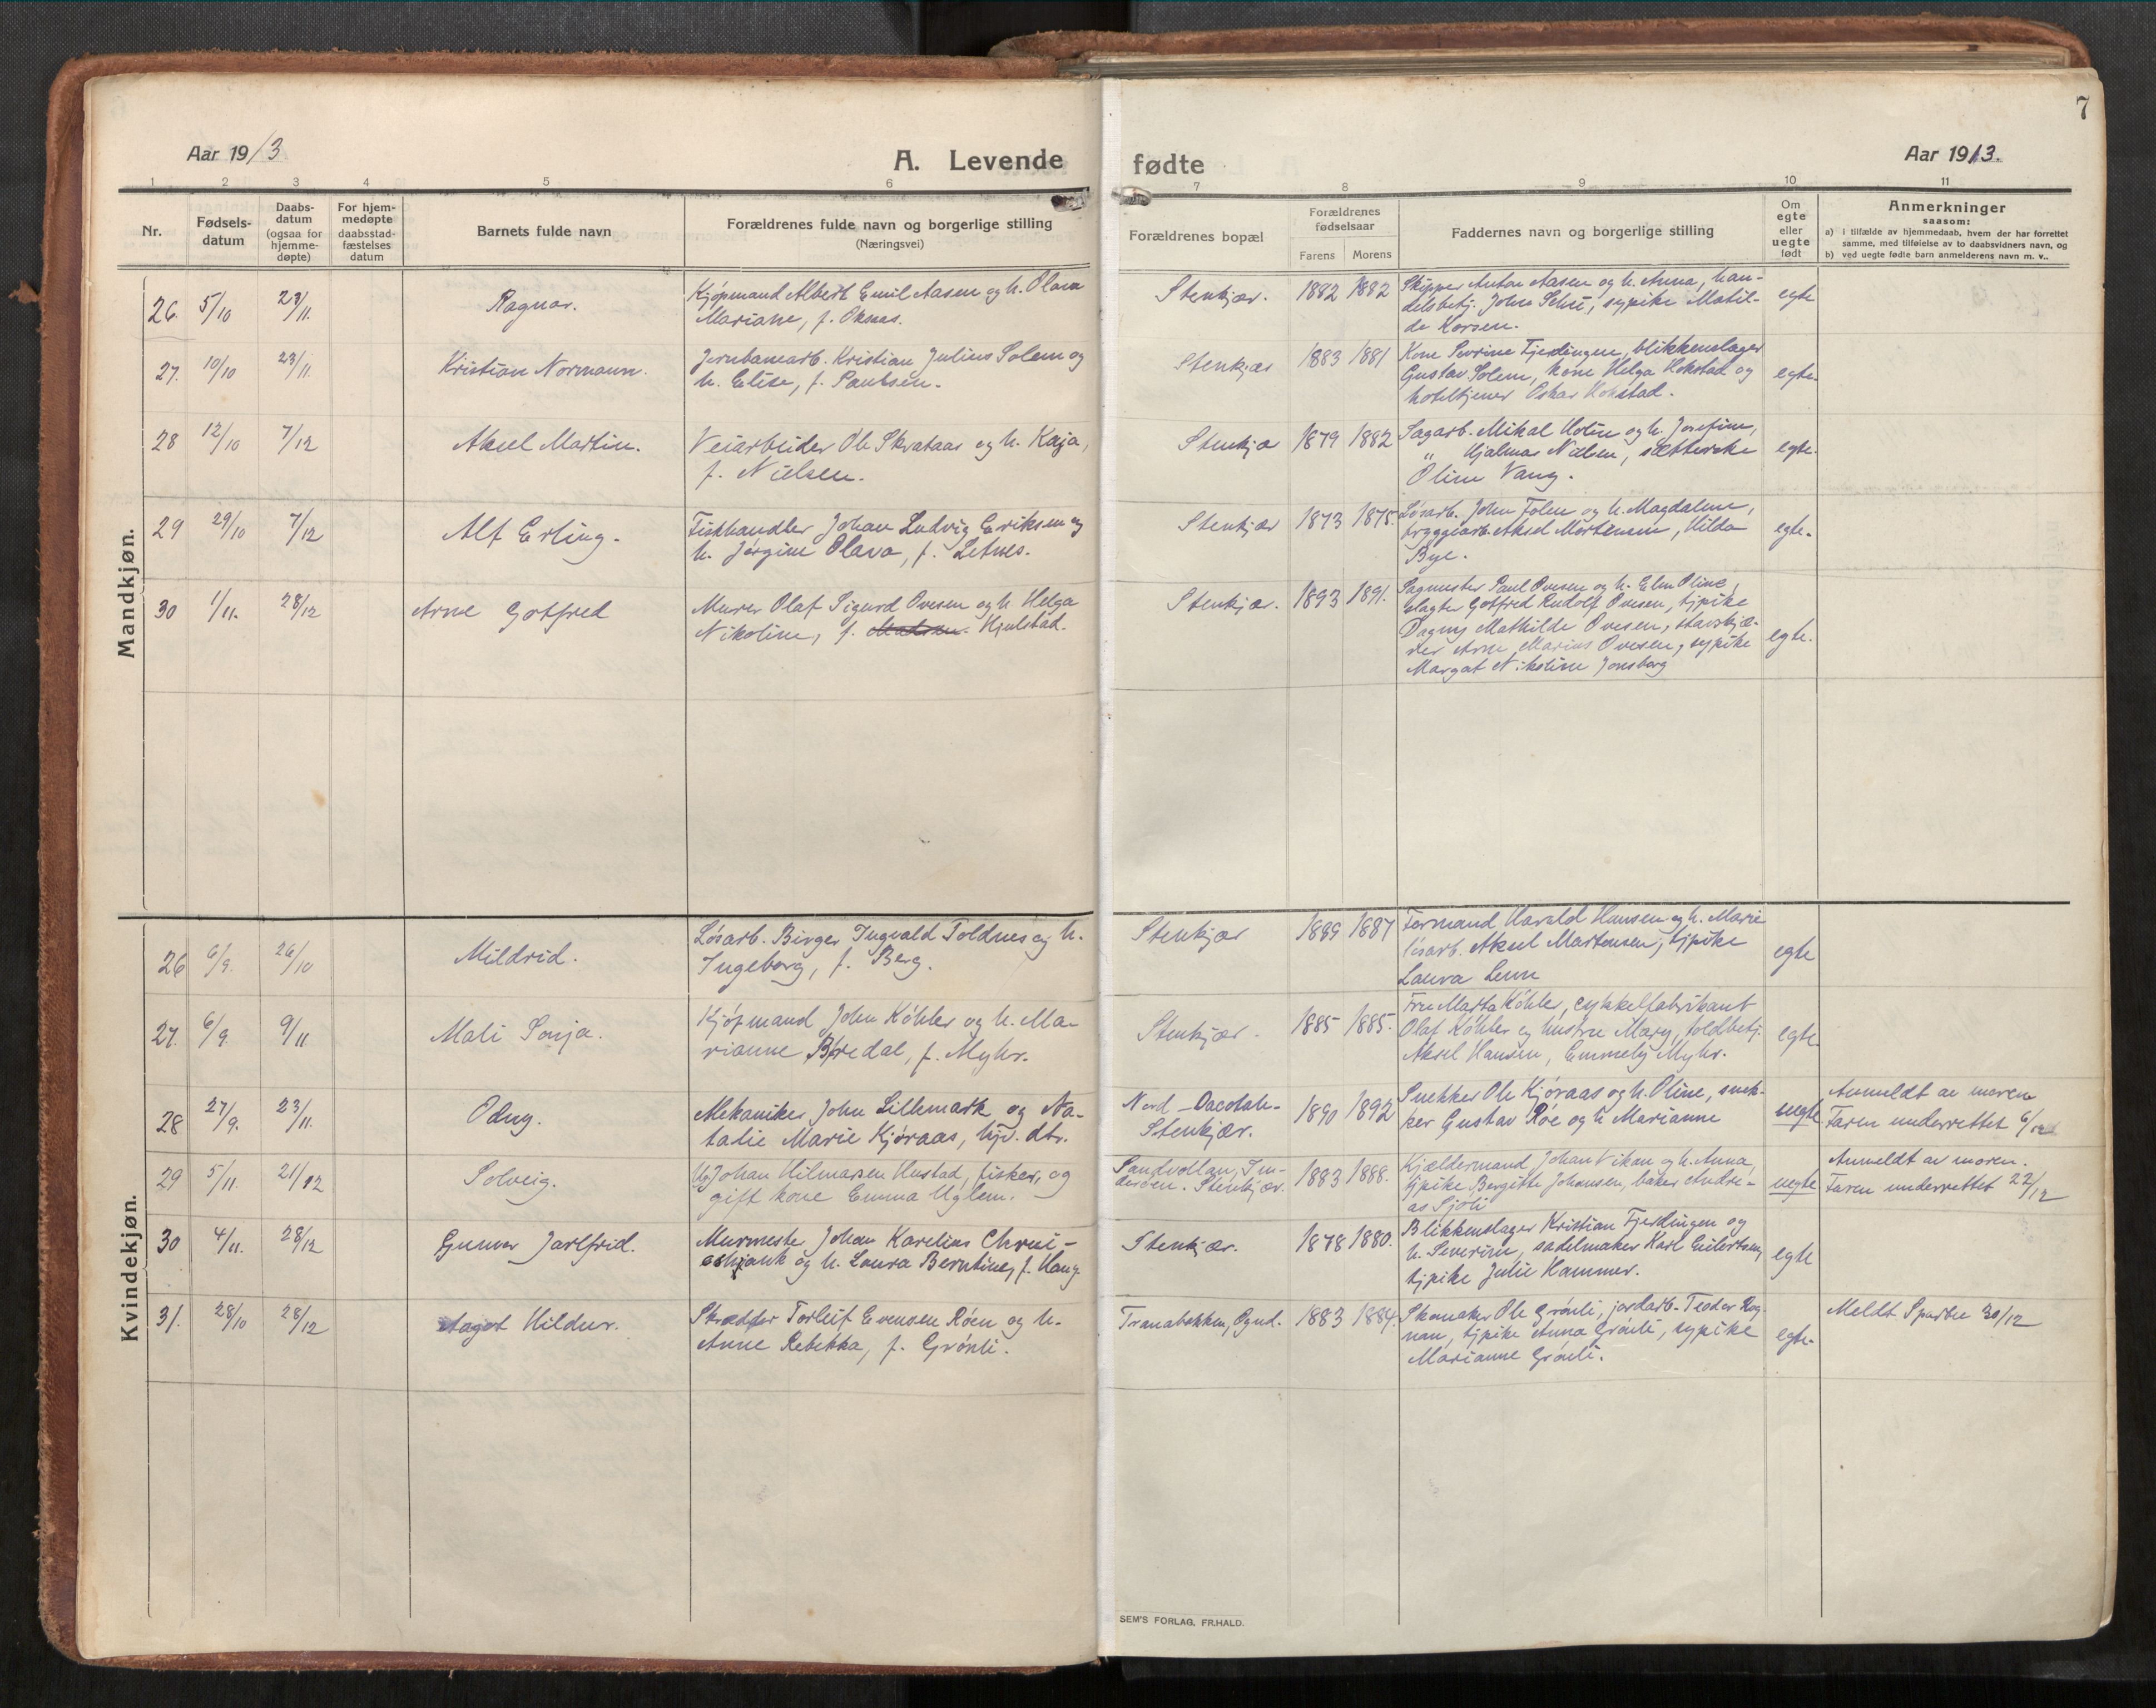 7
Aar 1913
A. Levende
fødte
Aar 1913.
1 2 3 4 5 6 7 8 9 10 11
Nr.
Fødsels-
datum
Daabs-
datum
(ogsaa for
hjemme-
døpte)
For hjem-
medøpte
daabsstad-
fæstelses
datum
Barnets fulde navn
Forældrenes fulde navn og borgerlige stilling
(Næringsvei)
Forældrenes bopæl
Forældrenes
fødselsaar
Farens
Morens
Faddernes navn og borgerlige stilling
Om
egte
eller
uegte
født
Anmerkninger
saasom:
a) i tilfælde av hjemmedaab, hvem der har forrettet
samme, med tilføielse av to daabsvidners navn, og
b) ved uegte fødte barn anmelderens navn m. v..
Mandkjøn.
26. 5/10 23/11. Ragnar.
Kjøpmand Albert Emil Aasen og h. Olava
Mariane, f. Øksnes.
Stenkjær. 1882 1882
Skipper Anton Aasen og h. Anna, han-
delsbetj. John Selnæ, sypike Matil-
de Korsen.
egte
27. 10/10 23/11. Kristian Normann.
Jernbanearb. Kristian Julius Solem og
h. Elise, f. Paulsen.
Stenkjær 1883 1881
Kone Severine Fjerdingen, blikkenslager
Gustav Solem, kone Helga Hokstad og
hoteltjener Oskar Hokstad.
egte.
28 12/10 7/12 Aksel Martin.
Veiarbeider Ole Skrataas og h. Kaja,
f. Nielsen.
Stenkjær 1879 1882
Sagarb. Mikal Holm og h. Josefine,
" Hjalmar Nielsen, sætterske
Oline Vang.
egte.
29 29/10 7/12 Alf Erling.
Fiskhandler Johan Ludvig Eriksen og
h. Jørgine Olava, f. Letnes.
Stenkjær 1873 1875.
Løsarb. John Folen og h. Magdalene,
bryggearb. Aksel Mortensen, Hilda
Bye.
egte.
30 1/11. 28/12 Arne Gotfred
Murer Olaf Sigurd Ovesen og h Helga
Nikoline, f. Hjulstad.
Stenkjær. 1893 1891.
Sagmester Paul Ovesen og h. Elen Oline,
slagter Gotfred Rudolf Ovesen, tjpike
Dagny Mathilde Ovesen, stavskjæ-
rer Arne Marius Ovesen, sypike
Margat Nikoline Jonsborg
egte.
Kvindekjøn.
26 6/9. 26/10 Mildrid.
Løsarb. Birger Ingvald Toldnes og h.
Ingeborg, f. Berg.
Stenkjær 1889 1887
Formand Harald Hansen og h. Marie
løsarb. Aksel Martensen, tjpike
Laura Lenn
egte
27. 6/9. 9/11 Mali Sonja.
Kjøpmand John Köhler og h. Ma-
rianne Bredal, f. Myhr.
Stenkjær. 1885 1885.
Fru Marta Köhler, cykkelfabrikant
Olaf Köhler og hustru Mary, toldbetj.
Aksel Hansen, Emmely Myhr.
egte.
28 27/9. 23/11. Odny.
Mekaniker John Lillemark og Na-
talie Marie Kjøraas, hjv. dtr.
Nord-Dacotah-
Stenkjær.
1890 1892
Snekker Ole Kjøraas og h. Oline, snek-
ker Gustav Røe og h Marianne
uegte
Anmeldt av moren
Faren underrettet 6/12
29 5/11. 21/12 Solveig.
Ug Johan Hilmarsen Hustad, fisker, og
gift kone Emma Uglem.
Sandvollan, In-
derøen. Stenkjær.
1883 1888.
Kjældermand Johan Vikan og h. Anna,
tjpike Bergitte Johansen, baker Andre-
as Sjøli
uegte
Anmeldt av moren.
Faren underrettet 22/12
30 4/11. 28/12 Gunvor Jarlfrid.
Murmester Johan Karelius
og h. Laura Berntine, f. Haug
Stenkjær. 1878 1880.
Blikkenslager Kristian Fjerdingen og
h. Severine, sadelmaker Karl Eilertsen,
tjpike Julie Hammer.
egte
31. 28/10 28/12 Aagot Hildur.
Skrædder Torleif Evensen Røen og h.
Anne Rebekka, f. Grønli.
Tranabakken, Ognd. 1883 1884.
Skomaker Ole Grønli, jordarb. Teodor Rog-
nan, tjpike Anna Grønli, sypike
Marianne Grønli.
egte.
Meldt Sparbu 30/12
SEM'S FORLAG, FR.HALD.